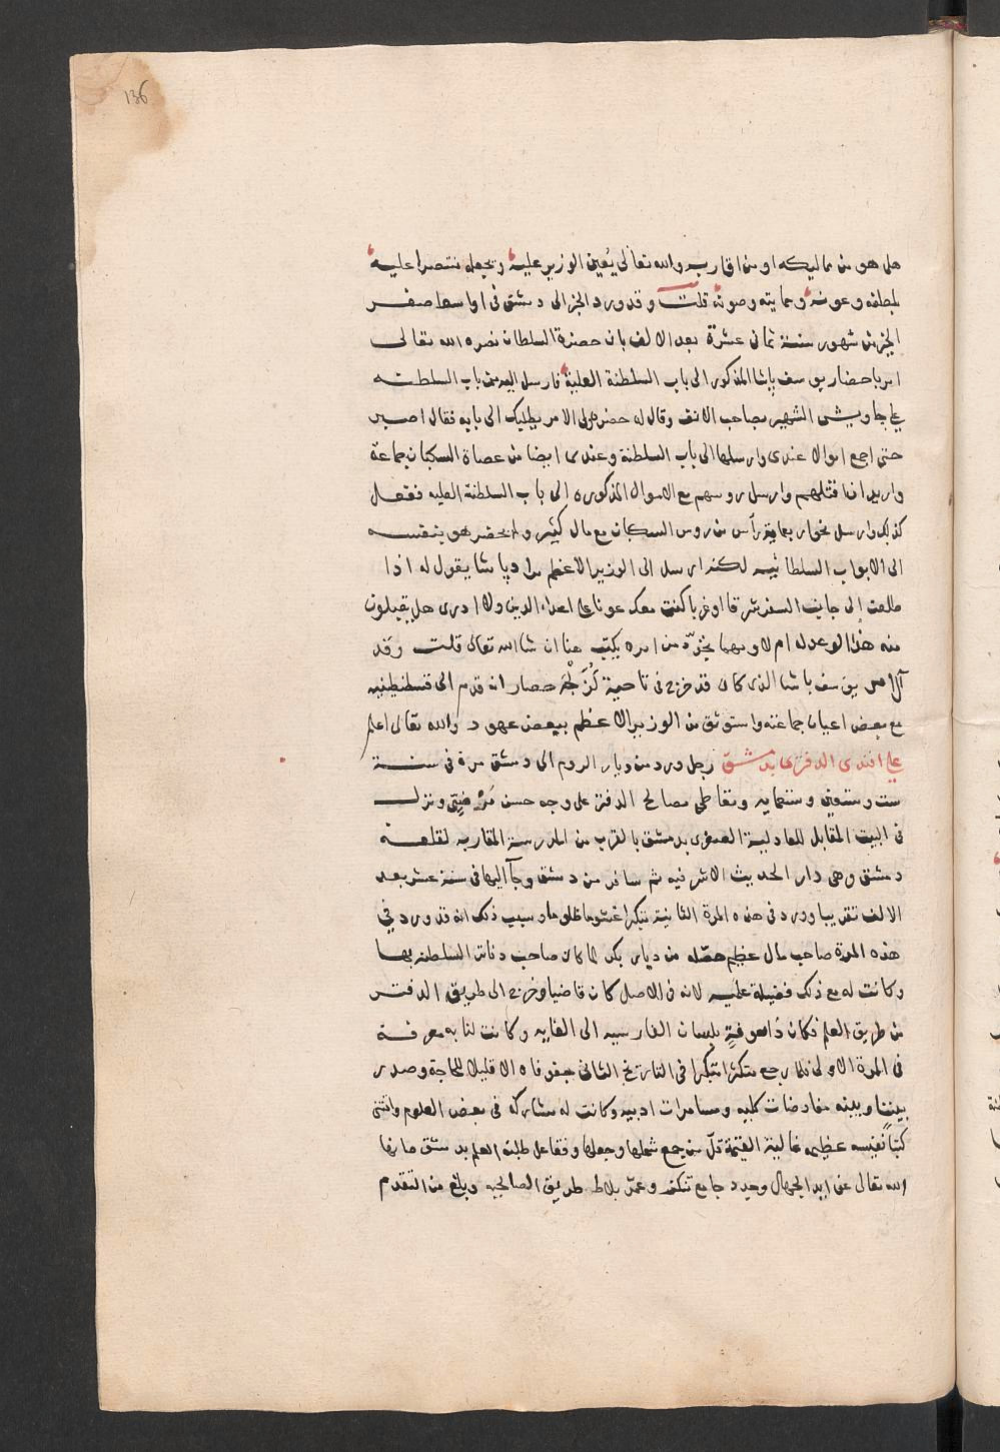 136
هل هو من مماليكه او من اقاربه والله تعالى يُعين الوزير عليه ويجعله منتصرا عليه
بلطفه وعونه وحمايته وصونه قلت وقد ورد الخبر الى دمشق فى اواسط صفر
الخير من شهور سنة ثمانى عشرة بعد الالف بان حضرة السلطان نصره الله تعالى
امر باحضار يوسف باشا المذكور الى باب السلطنة العلية فارسل اليه من باب السلطنه
على جاويش الشهير بصاحب الانف وقال له حضرة ولى الامر يطلبك الى بابه فقال اصبر
حتى اجمع اموالا عندى وارسلها الى باب السلطنة وعندى ايضا من عصاة السكبان جماعة
واريد ان اقتلهم وارسل روسهم مع الاموال المذكوره الى باب السلطنة العليه ففعل
كذلك وارسل نحو اربعماية رأس من روس السكبان مع مال كثير ولم يحضر هو بنفسه
الى الابواب السلطانيه لكنه ارسل الى الوزير الاعظم مراد باشا يقول له اذا
طلعت إلى جانب السفر شرقا او غربا كنت معك عونا على اعداء الدين ولا ادرى هل يقبلون
منه هذا الوعد له ام لا ومهما تحرّر من امره يكتب هنا ان شا الله تعالى قلت وقد
آل امر يوسف باشا الذى كان قد خرج فى ناحية كُزَلْجَه حصار انه قدم الى قسطنطينيه
مع بعض اعيان جماعته واستوثق من الوزير الاعظم ببعض عهود والله تعالى اعلم
على افندى الدفترى بدمشق رجل ورد من ديار الروم الى دمشق مرة فى سنة
ست وتسعين وتسعمايه وتعاطى مصالح الدفتر على وجه حسن مَرْضِيّ ونزل
فى البيت المقابل للعادلية الصغرى بدمشق بالقرب من المدرسة المقاربه لقلعة
دمشق وهى دار الحديث الاشرفيه ثم سافر من دمشق وجآ اليها فى سنة عشر بعد
الالف تقريبا وورد فى هذه المرة الثانية متكبرا غشوما ظلوما وسبب ذلك انه قد ورد في
هذه المرة صاحب مال عظيم حصّله من ديار بكر لما كان صاحب دفاتر السلطنه بها
وكانت له مع ذلك فضيلة علميه لانه فى الاصل كان قاضيا وخرج الى طريق الدفتر
من طريق العلم فكان ذا معرفةٍ بلسان الفارسيه الى الغايه وكانت لنا به معرفة
فى المرة الاولى فلما رجع متكثرا متكبرا فى التاريخ الثانى جفوناه الا قليلا للحاجة وصدر
بيننا وبينه مفاوضات كليه ومسامرات ادبيه وكانت له مشاركة فى بعض العلوم واقتنى
كتبا نفيسه عظيمه غالية القيمة قلّ من جمع شملها وجعلها وقفا على طلبة العلم بدمشق صانها
الله تعالى عن ايدى الجهال وجدد جامع تنكز وعمّر بلاط طريق الصالحيه وبلغ من التقدم